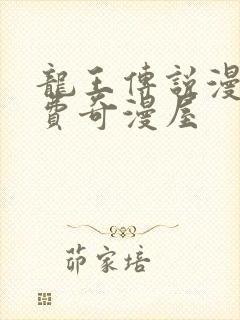 龍王傳說漫
費奇漫屋
茆家培